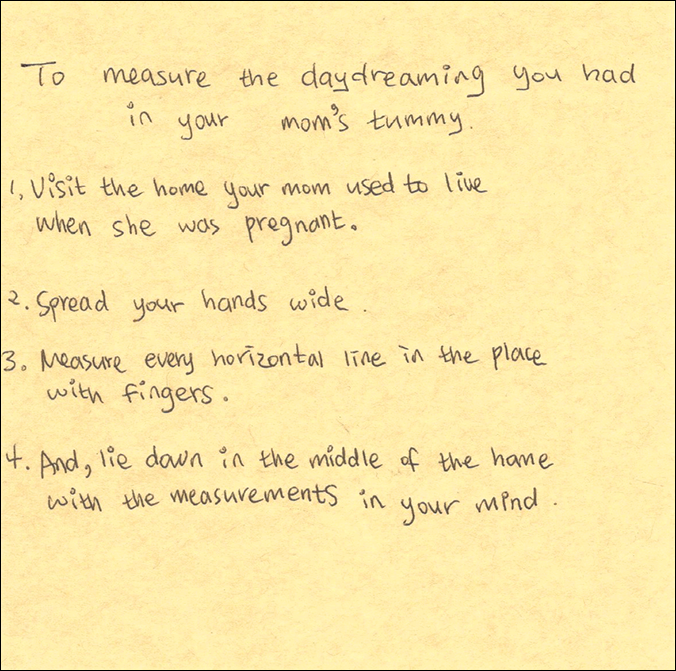 To measure the daydreaming you had
in your mom's tummy.
1, Visit the home your mom used to live
when she was pregnant.
2. Spread your hands wide.
3. Measure every horizontal line in the place
with fingers.
4. And, lie down in the middle of the home
with the measurements in your mind.